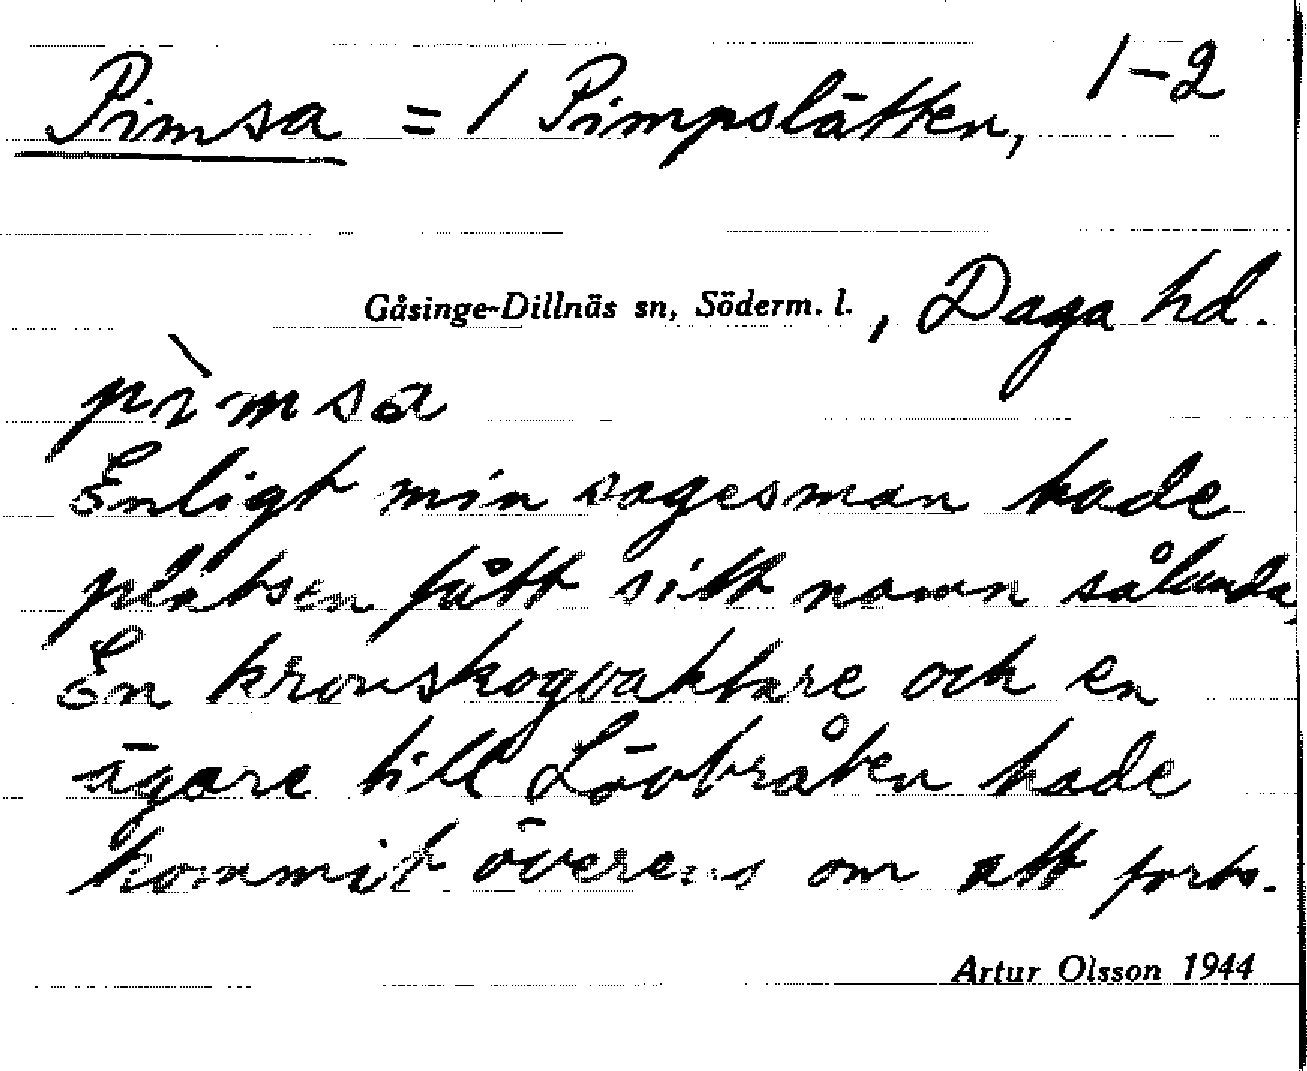 1-2
Pimsa = / Pimpslätten,
Gåsinge-Dillnäs sn, Söderm. l. , Daga hd.
pìmsa
Enligt min sagesman hade
platsen fått sitt namn sålunda.
En kronskogvaktare och en
ägare till Lövbråten hade
kommit överens om att forts.
Artur Olsson 1944